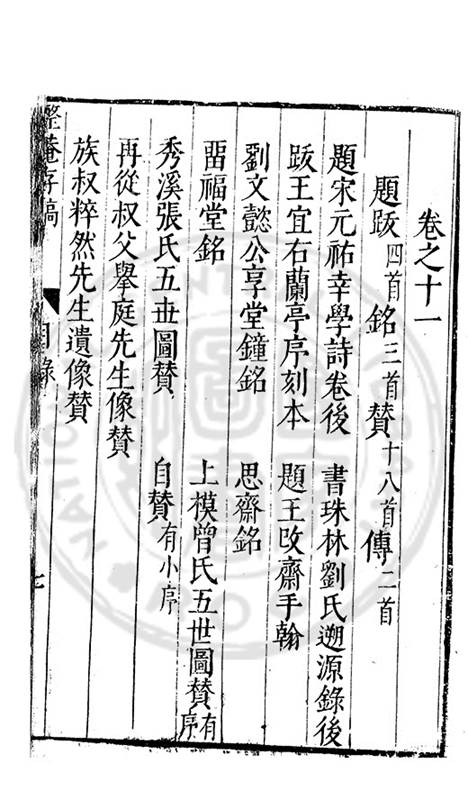 卷之十一
題跋四首銘三首贊十八首傳二首
題宋元祐幸學詩卷後　書珠林劉氏遡源錄後
跋王宜右蘭亭序刻本　題王改齋手翰
劉文懿公享堂鐘銘　思齋銘
畱福堂銘　上模曾氏五世圖贊有序
秀溪張氏五世圖贊　自贊有小序
再從叔父舉庭先生像贊
族叔粹然先生遺像贊
整菴存稿　目錄　七